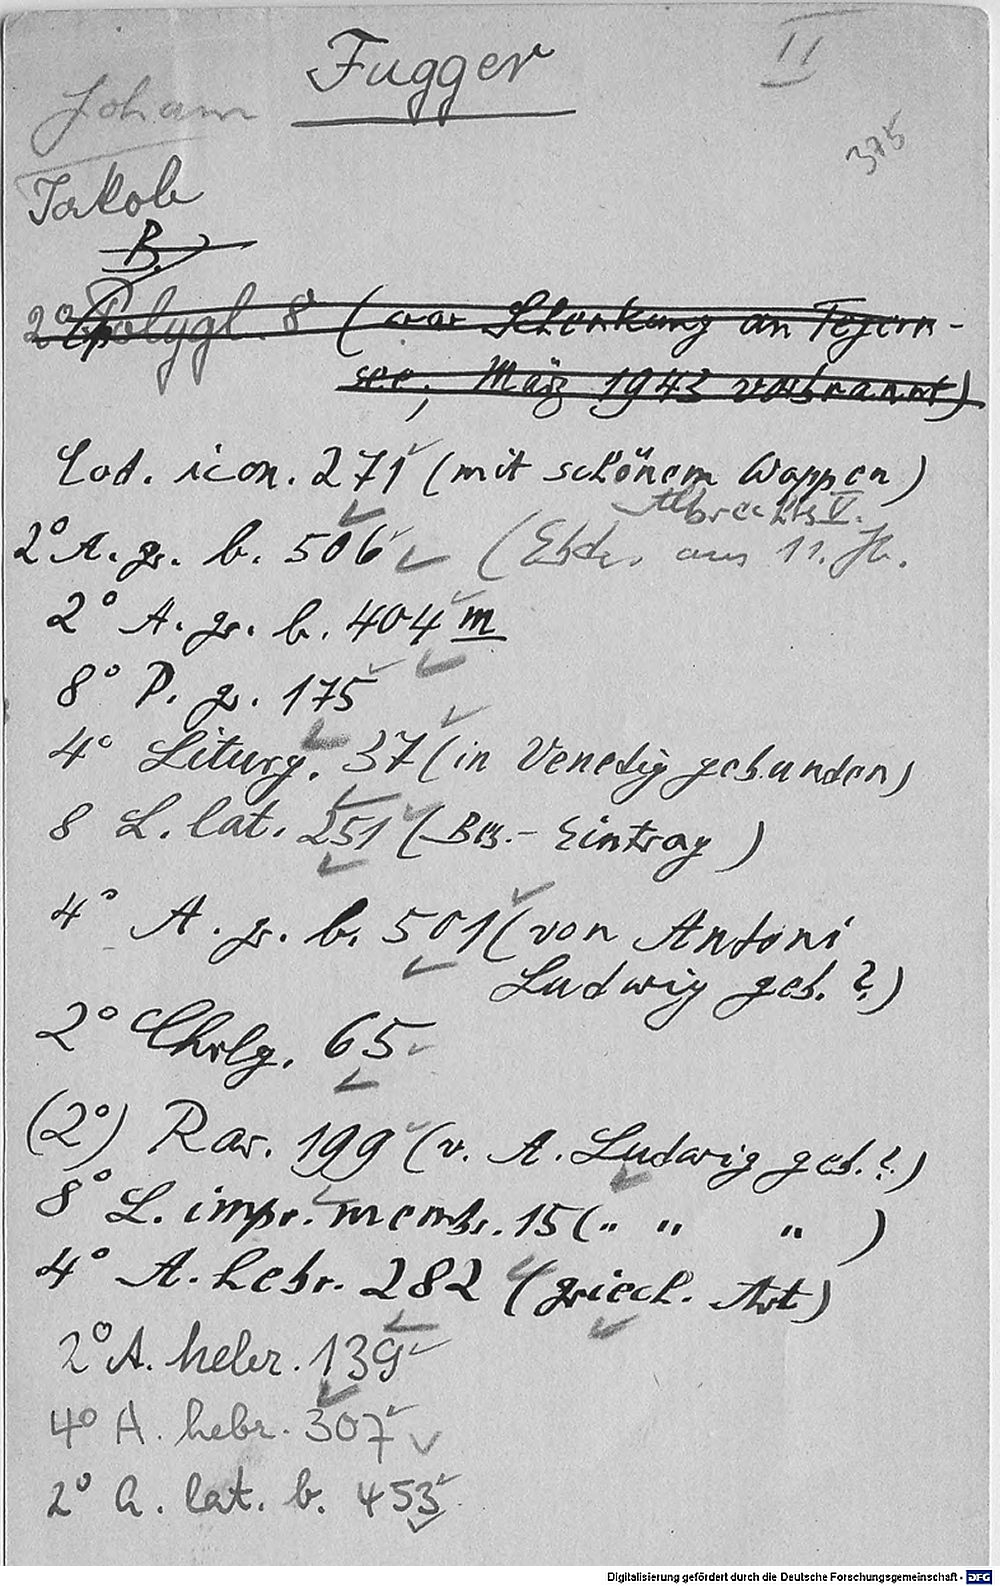 Fugger
II
Johann
375
Jakob
B.
2° Polygl. 8 (war Schenkung an Tegern-
see, März 1943 verbrannt)
Cod. icon. 271 (mit schönem Wappen)
Albrechts V.
2° A. gr. b. 506 (Ebde. aus 11. Jh.
2° A. gr. b. 404 m
8° P. gr. 175
4° Liturg. 37 (in Venedig gebunden)
8 L. lat. 251 (Bes.-Eintrag)
4° A. gr. b. 501 (von Antoni
Ludwig geb. ?)
2° Chrlg. 65
(2°) Rar. 199 (v. A. Ludwig geb. ?)
8° L. impr. membr. 15 (" " ")
4° A. hebr. 282 (griech. Art)
2° A. hebr. 139
4° A. hebr. 307
2° A. lat. b. 453
Digitalisierung gefördert durch die Deutsche Forschungsgemeinschaft - DFG